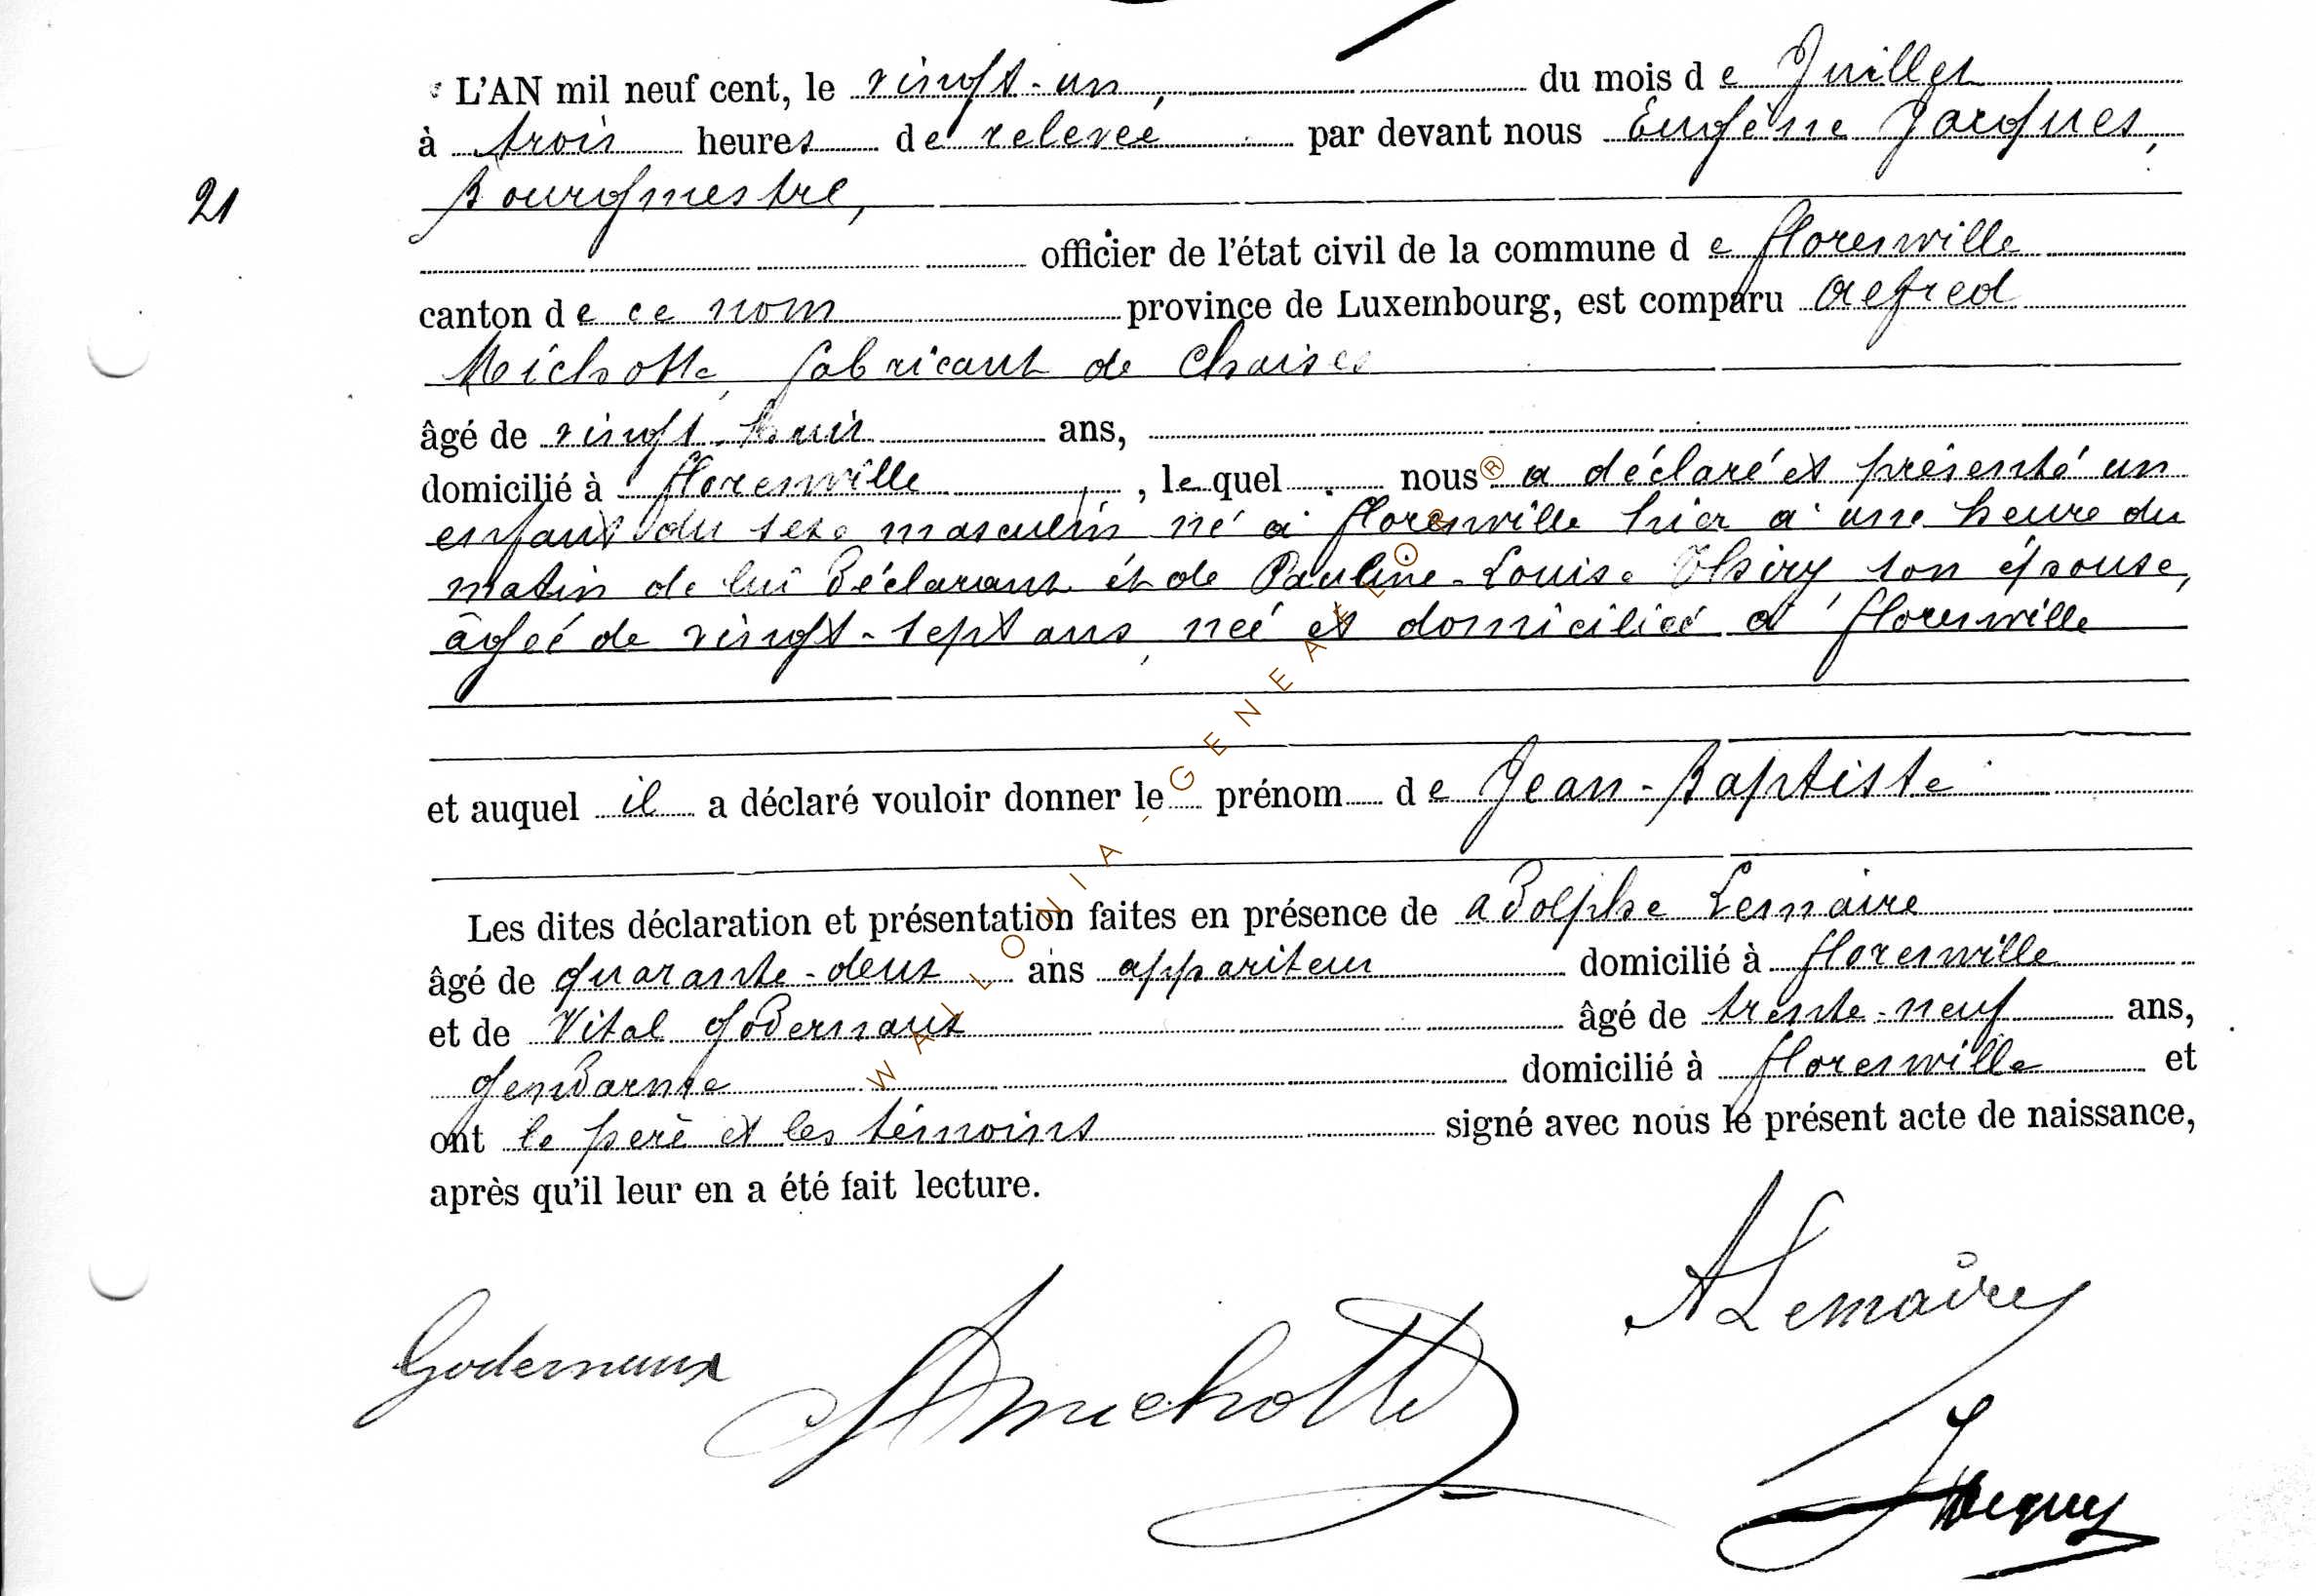 L'AN mil neuf cent, le vingt-un, du mois de Juillet
à trois heures de relevée par devant nous Eugène Jacques,
Bourgmestre,
21
officier de l'état civil de la commune de florenville
canton de ce nom province de Luxembourg, est comparu Alfred
Michotte, fabricant de Chaises
âgé de vingt-huit ans,
domicilié à florenville, lequel nous a déclaré et présenté un
enfant du sexe masculin né à florenville hier à une heure du
matin de lui Déclarant et de Pauline-Louise Thiry, son épouse,
âgée de vingt-sept ans, née et domiciliée à florenville
et auquel il a déclaré vouloir donner le prénom de Jean-Baptiste
Les dites déclaration et présentation faites en présence de Adolphe Lemaire
âgé de quarante-deux ans appariteur domicilié à florenville
et de Vital Godernaux âgé de trente-neuf ans,
Gendarme domicilié à florenville et
ont le père et les témoins signé avec nous le présent acte de naissance,
après qu'il leur en a été fait lecture.
A Lemaire
Godernaux
A Michotte
Jacques
WALLONIA-GENEAFLOR®